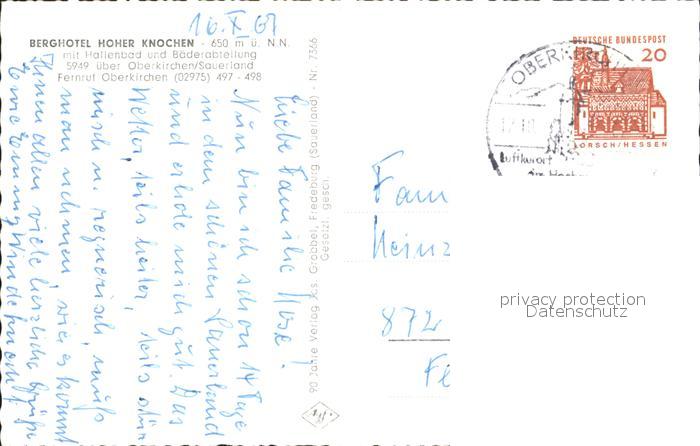 16.X.67
BERGHOTEL HOHER KNOCHEN - 650 m ü. N.N.
mit Hallenbad und Bäderabteilung
5949 über Oberkirchen/Sauerland
Fernruf Oberkirchen (02975) 497 - 498
Liebe Familie
Nun bin ich schon 14 Tage
in dem schönen Sauerland
und erhole mich gut. Das
Wetter, teils heiter, teils
u. regnerisch, muß
man nehmen, wie es kommt
Ihnen allen viele herzliche Grüße
90 Jahre Verlag Jos. Grobbel, Fredeburg (Sauerland) - Nr. 7366
Gesetzl. Gesch.
DEUTSCHE BUNDESPOST
20
LORSCH/HESSEN
OBERKIRCH
Luftkurort
Fam
Heinz
872
privacy protection
Datenschutz